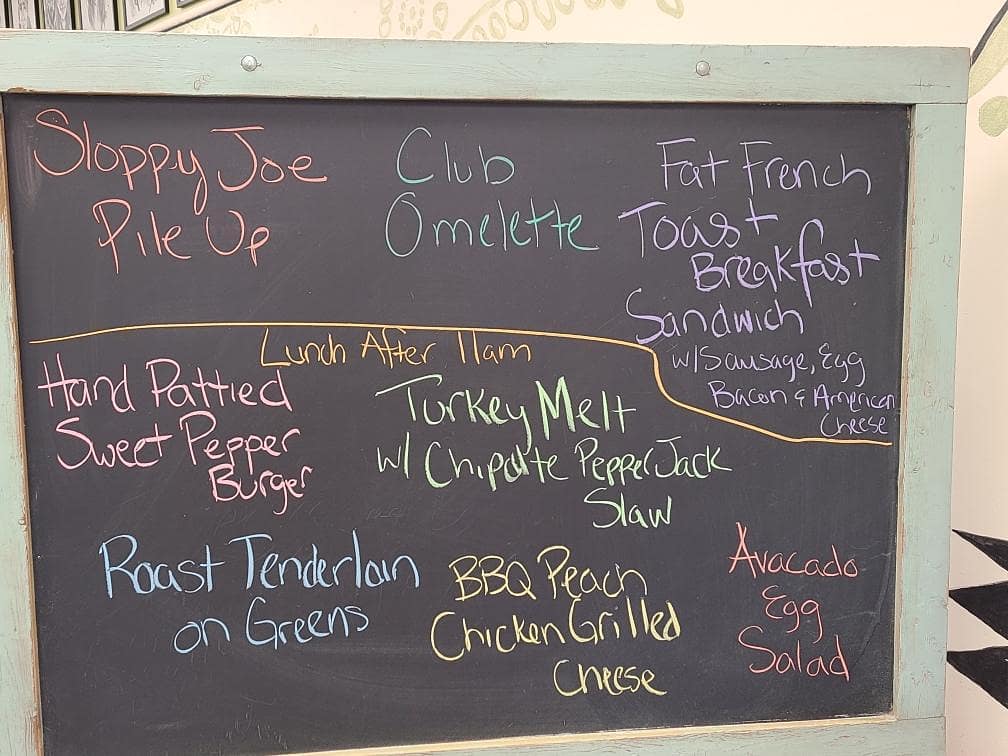 Sloppy Joe
Pile Up
Club
Omelette
Fat French
Toast
Breakfast
Sandwich
w/Sausage, Egg
Bacon & American
Cheese
Lunch After 11am
Hand Pattied
Sweet Pepper
Burger
Turkey Melt
w/ Chipotle Pepper Jack
Slaw
Roast Tenderloin
on Greens
BBQ Peach
Chicken Grilled
Cheese
Avacado
Egg
Salad